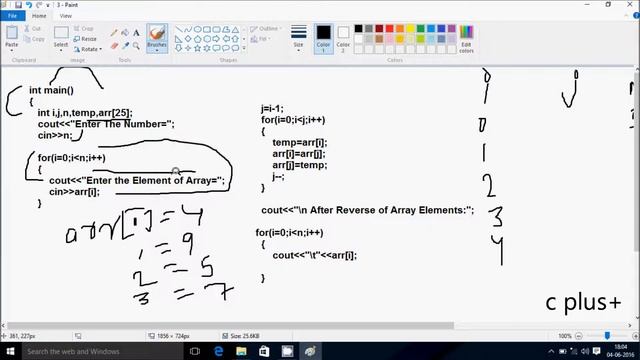 3 - Paint
File
Home
View
Paste
Select
Brushes
Size
Color
1
Color
2
Edit
colors
Clipboard
Image
Tools
Shapes
Colors
int main()
{
int i,j,n,temp,arr[25];
cout<<"Enter The Number=";
cin>>n;
for(i=0;i<n;i++)
{
cout<<"Enter the Element of Array=";
cin>>arr[i];
}
arr[1]=4
1 = 9
2 = 5
3 = 7
j=i-1;
for(i=0;i<j;i++)
{
temp=arr[i];
arr[i]=arr[j];
arr[j]=temp;
j--;
}
cout<<"\n After Reverse of Array Elements:";
for(i=0;i<n;i++)
{
cout<<"\t"<<arr[i];
}
i
j
0
1
2
3
4
c plus+
361, 227px
1856 × 724px
Size: 25.6KB
100%
Search the web and Windows
18:04
04-06-2016